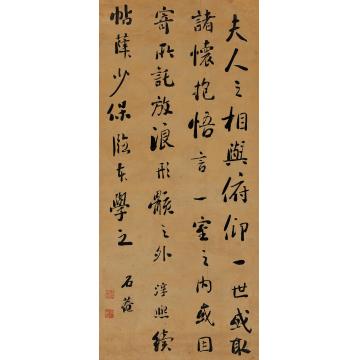 夫人之相與俯仰一世或取
諸懷抱悟言一室之內或因
寄所託放浪形骸之外淳熙續
帖薛少保臨本學之
石菴